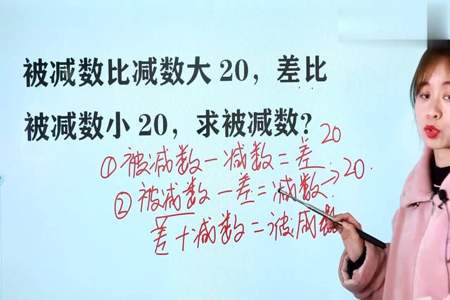 被减数比减数大20，差比
被减数小20，求被减数?
20
①被减数－减数＝差
②被减数－差＝减数→20.
差＋减数＝被减数